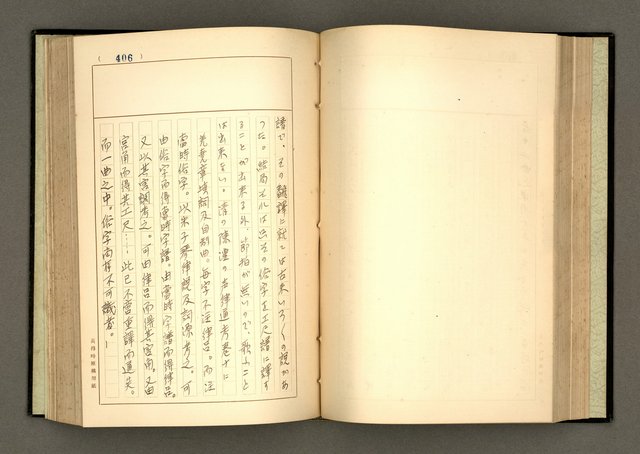 (406)
譜で、その飜譯に就ては古来いろ〱の説があ
つた。結局それは只その俗字を工尺譜に譯す
ることが出来る外、節拍が無いので、歌ふこと
は出来ない。清の陳澧の声律通考巻十に
堯章塡詞及自制曲。每字不注律呂。而注
當時俗字。以朱子琴律説及詞源考之。可
由俗字而得當時字譜。由當時字譜而得律呂。
又以其宮調考之。可由律呂而得其宮商。又由
宮商而得其工尺…此已不啻重譯而通矣。
而一曲之中。俗字尚有不可識者。
長澤特製原稿用紙